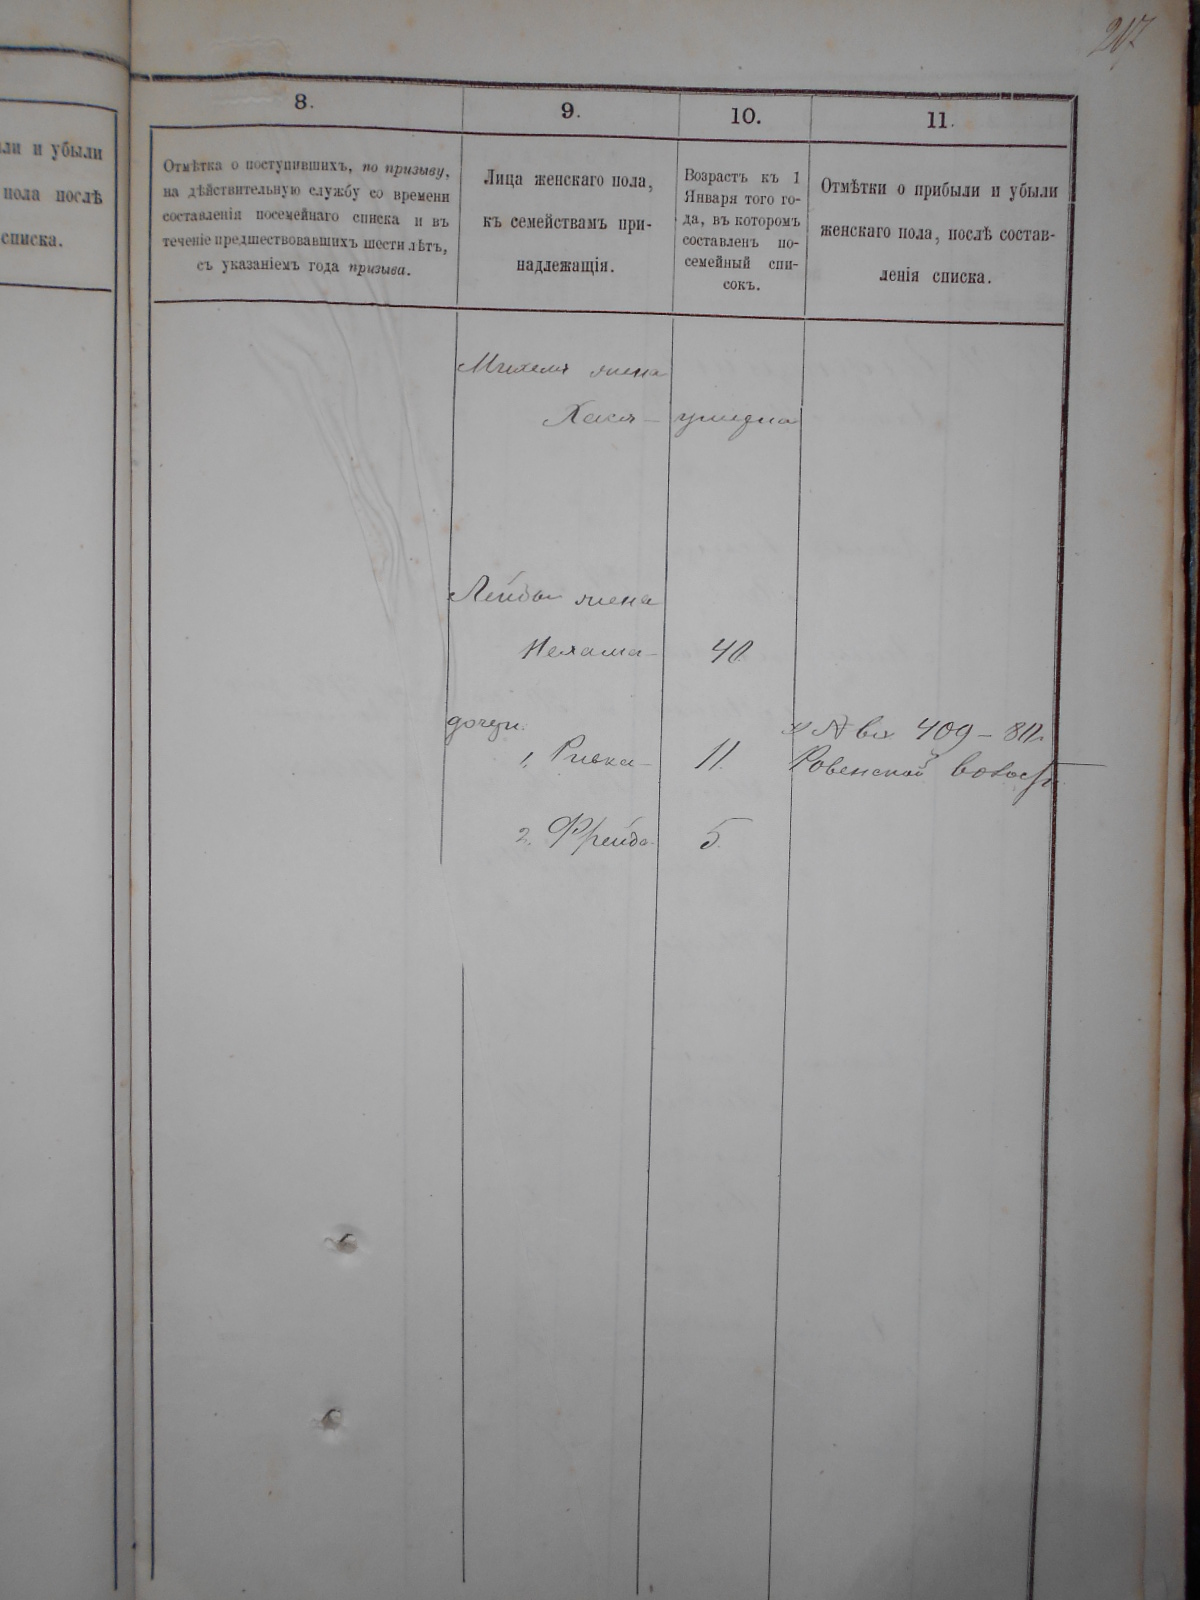 217
ли и убыли
пола послѣ
списка.
8.
9.
10.
11.
Отмѣтка о поступившихъ, по призыву,
на дѣйствительную службу со времени
составленія посемейнаго списка и въ
теченіе предшествовавшихъ шести лѣтъ,
съ указаніемъ года призыва.
Лица женскаго пола,
къ семействамъ при-
надлежащія.
Возрастъ къ 1
Января того го-
да, въ которомъ
составленъ по-
семейный спи-
сокъ.
Отмѣтки о прибыли и убыли
женскаго пола, послѣ состав-
ленія списка.
Михеля жена
Хася —
Лейбы жена
Нехама — 40
дочери:
1. Ривка — 11.
409 — 80
Ровенской волости
2. Фрейда 5.